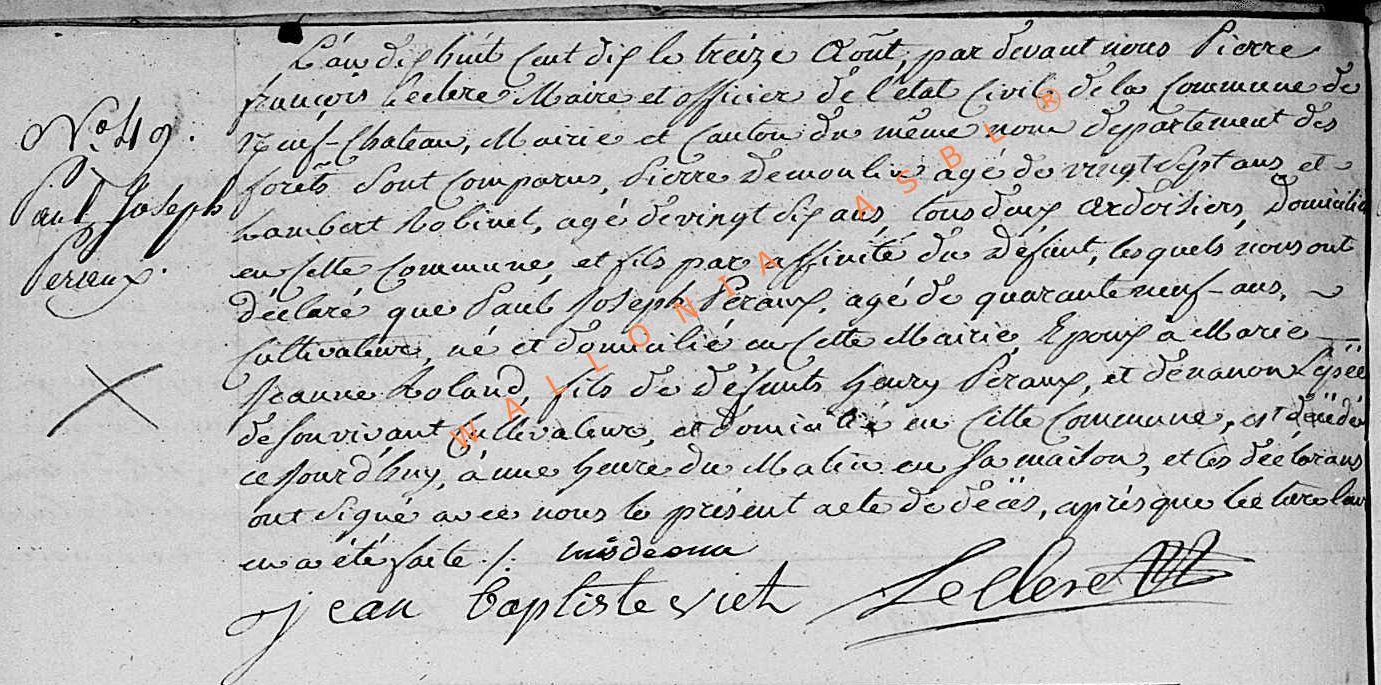 L'an dix huit cent dix le treize Août, par devant nous Pierre
françois Leclere Maire et officier de l'état Civil de la Commune de
Neuf-Chateau, Mairie et Canton du même nom département des
forêts sont Comparus, Pierre Demoulin agé de vingt sept ans et
Lambert Robinet, agé de vingt six ans, tous deux ardoisiers, Domicilié
en cette Commune, et fils par affinité du défunt, lesquels nous ont
déclaré que Paul Joseph Peraux, agé de quarante neuf-ans,
Cultivateur, né et domicilié en cette Mairie Epoux à Marie
Jeanne Roland, fils de défunts henry Péraux, et de nanon
de son vivant Cultivateur, et domicilié en cette Commune, est décédé
ce jourd'huy, à une heure du Matin en sa maison, et les déclarans
ont signé avec nous le présent acte de décès, après que lecture leur
en a été faite /.
jean baptiste Leclere
N.o 49.
Paul Joseph
Peraux.
WALLONIA ASBL ®